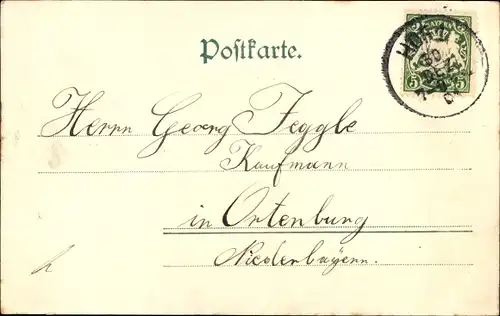 Postkarte.
BAYERN
5 5
Herrn Georg Jeggle
Kaufmann
in Ortenburg
Niederbayern.